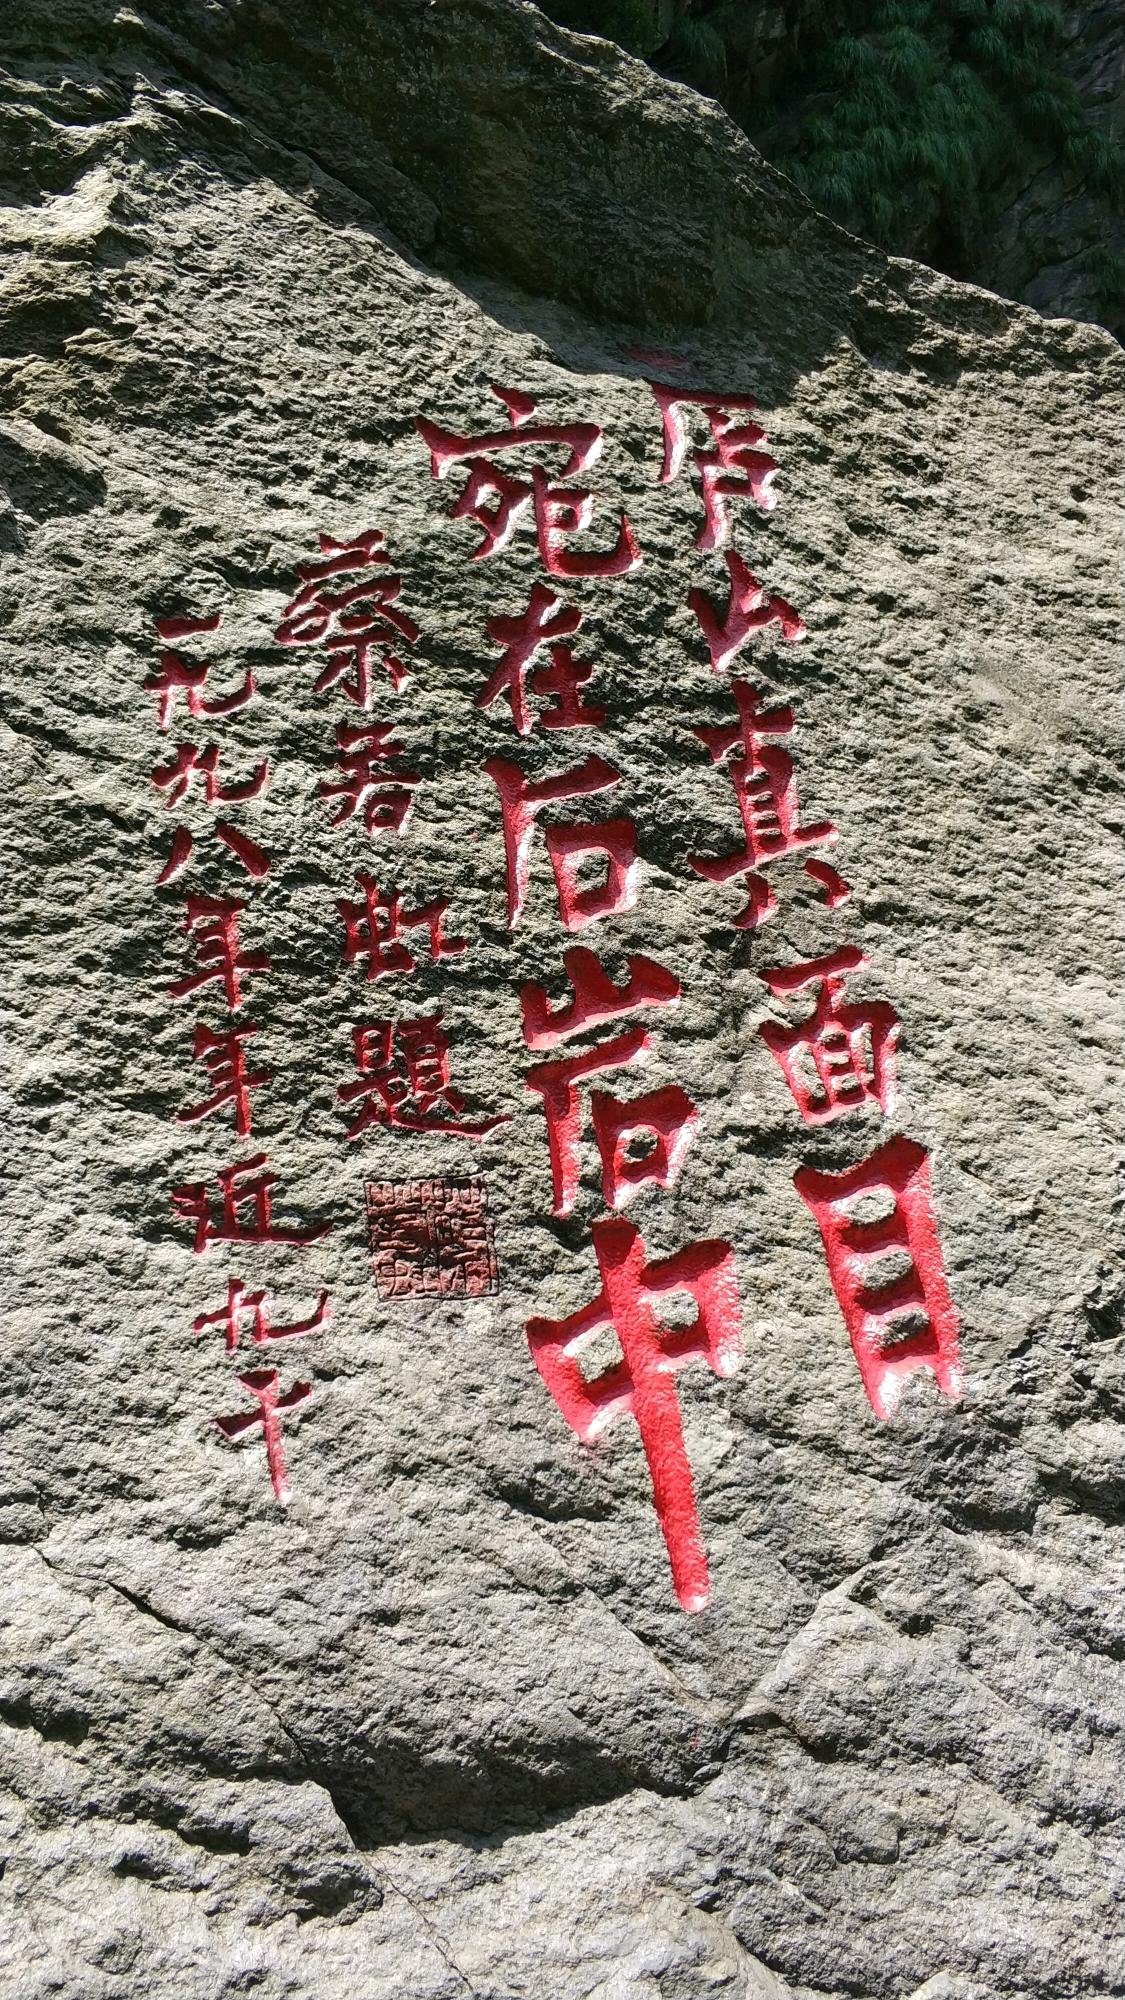 庐山真面目
宛在石岩中
蔡若虹題
一九九八年年近九十